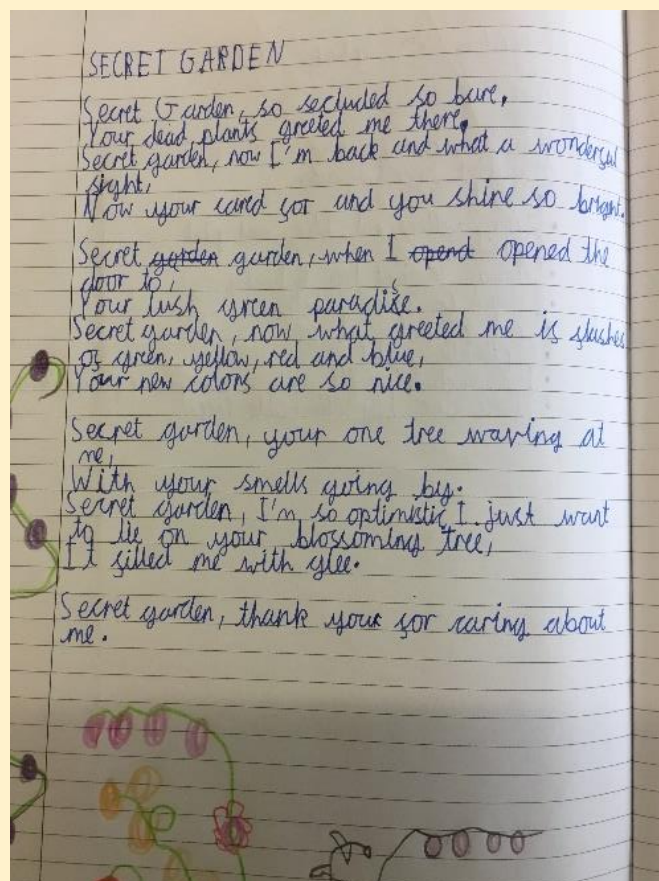 SECRET GARDEN
Secret Garden, so secluded so bare,
Your dead plants greeted me there,
Secret garden, now I'm back and what a wonderful
sight,
Now your cared for and you shine so bright.
Secret garden garden, when I opend opened the
door to,
Your lush green paradise.
Secret garden, now what greeted me is slashes
of green, yellow, red and blue,
Your new colors are so nice.
Secret garden, your one tree waving at
me,
With your smells going by.
Secret garden, I'm so optimistic I just want
to lie on your blossoming tree,
It filled me with glee.
Secret garden, thank your for caring about
me.